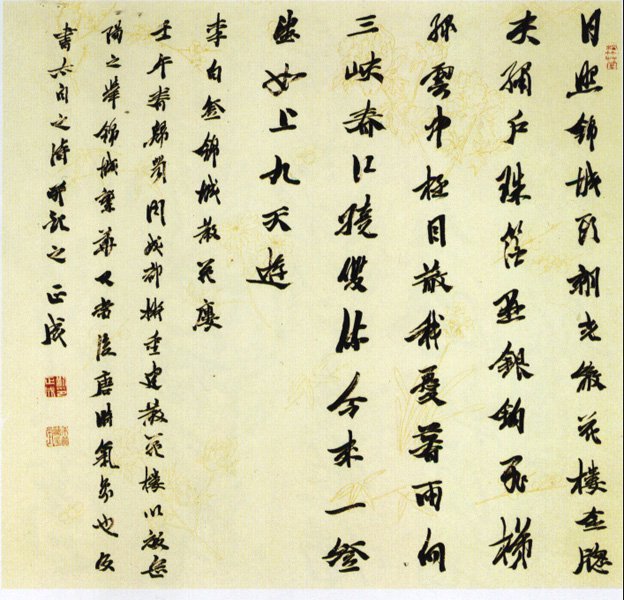 日照錦城頭朝光散花樓金牕
夾繡戶珠箔懸銀鉤飛梯
綠雲中極目散我憂暮雨向
三峽春江繞雙流今來一登
望如上九天遊
李白登錦城散花樓
壬午春歸蜀聞成都擬重建散花樓以
之舉錦城繁華又當復唐時氣象也
書太白之詩記之正成